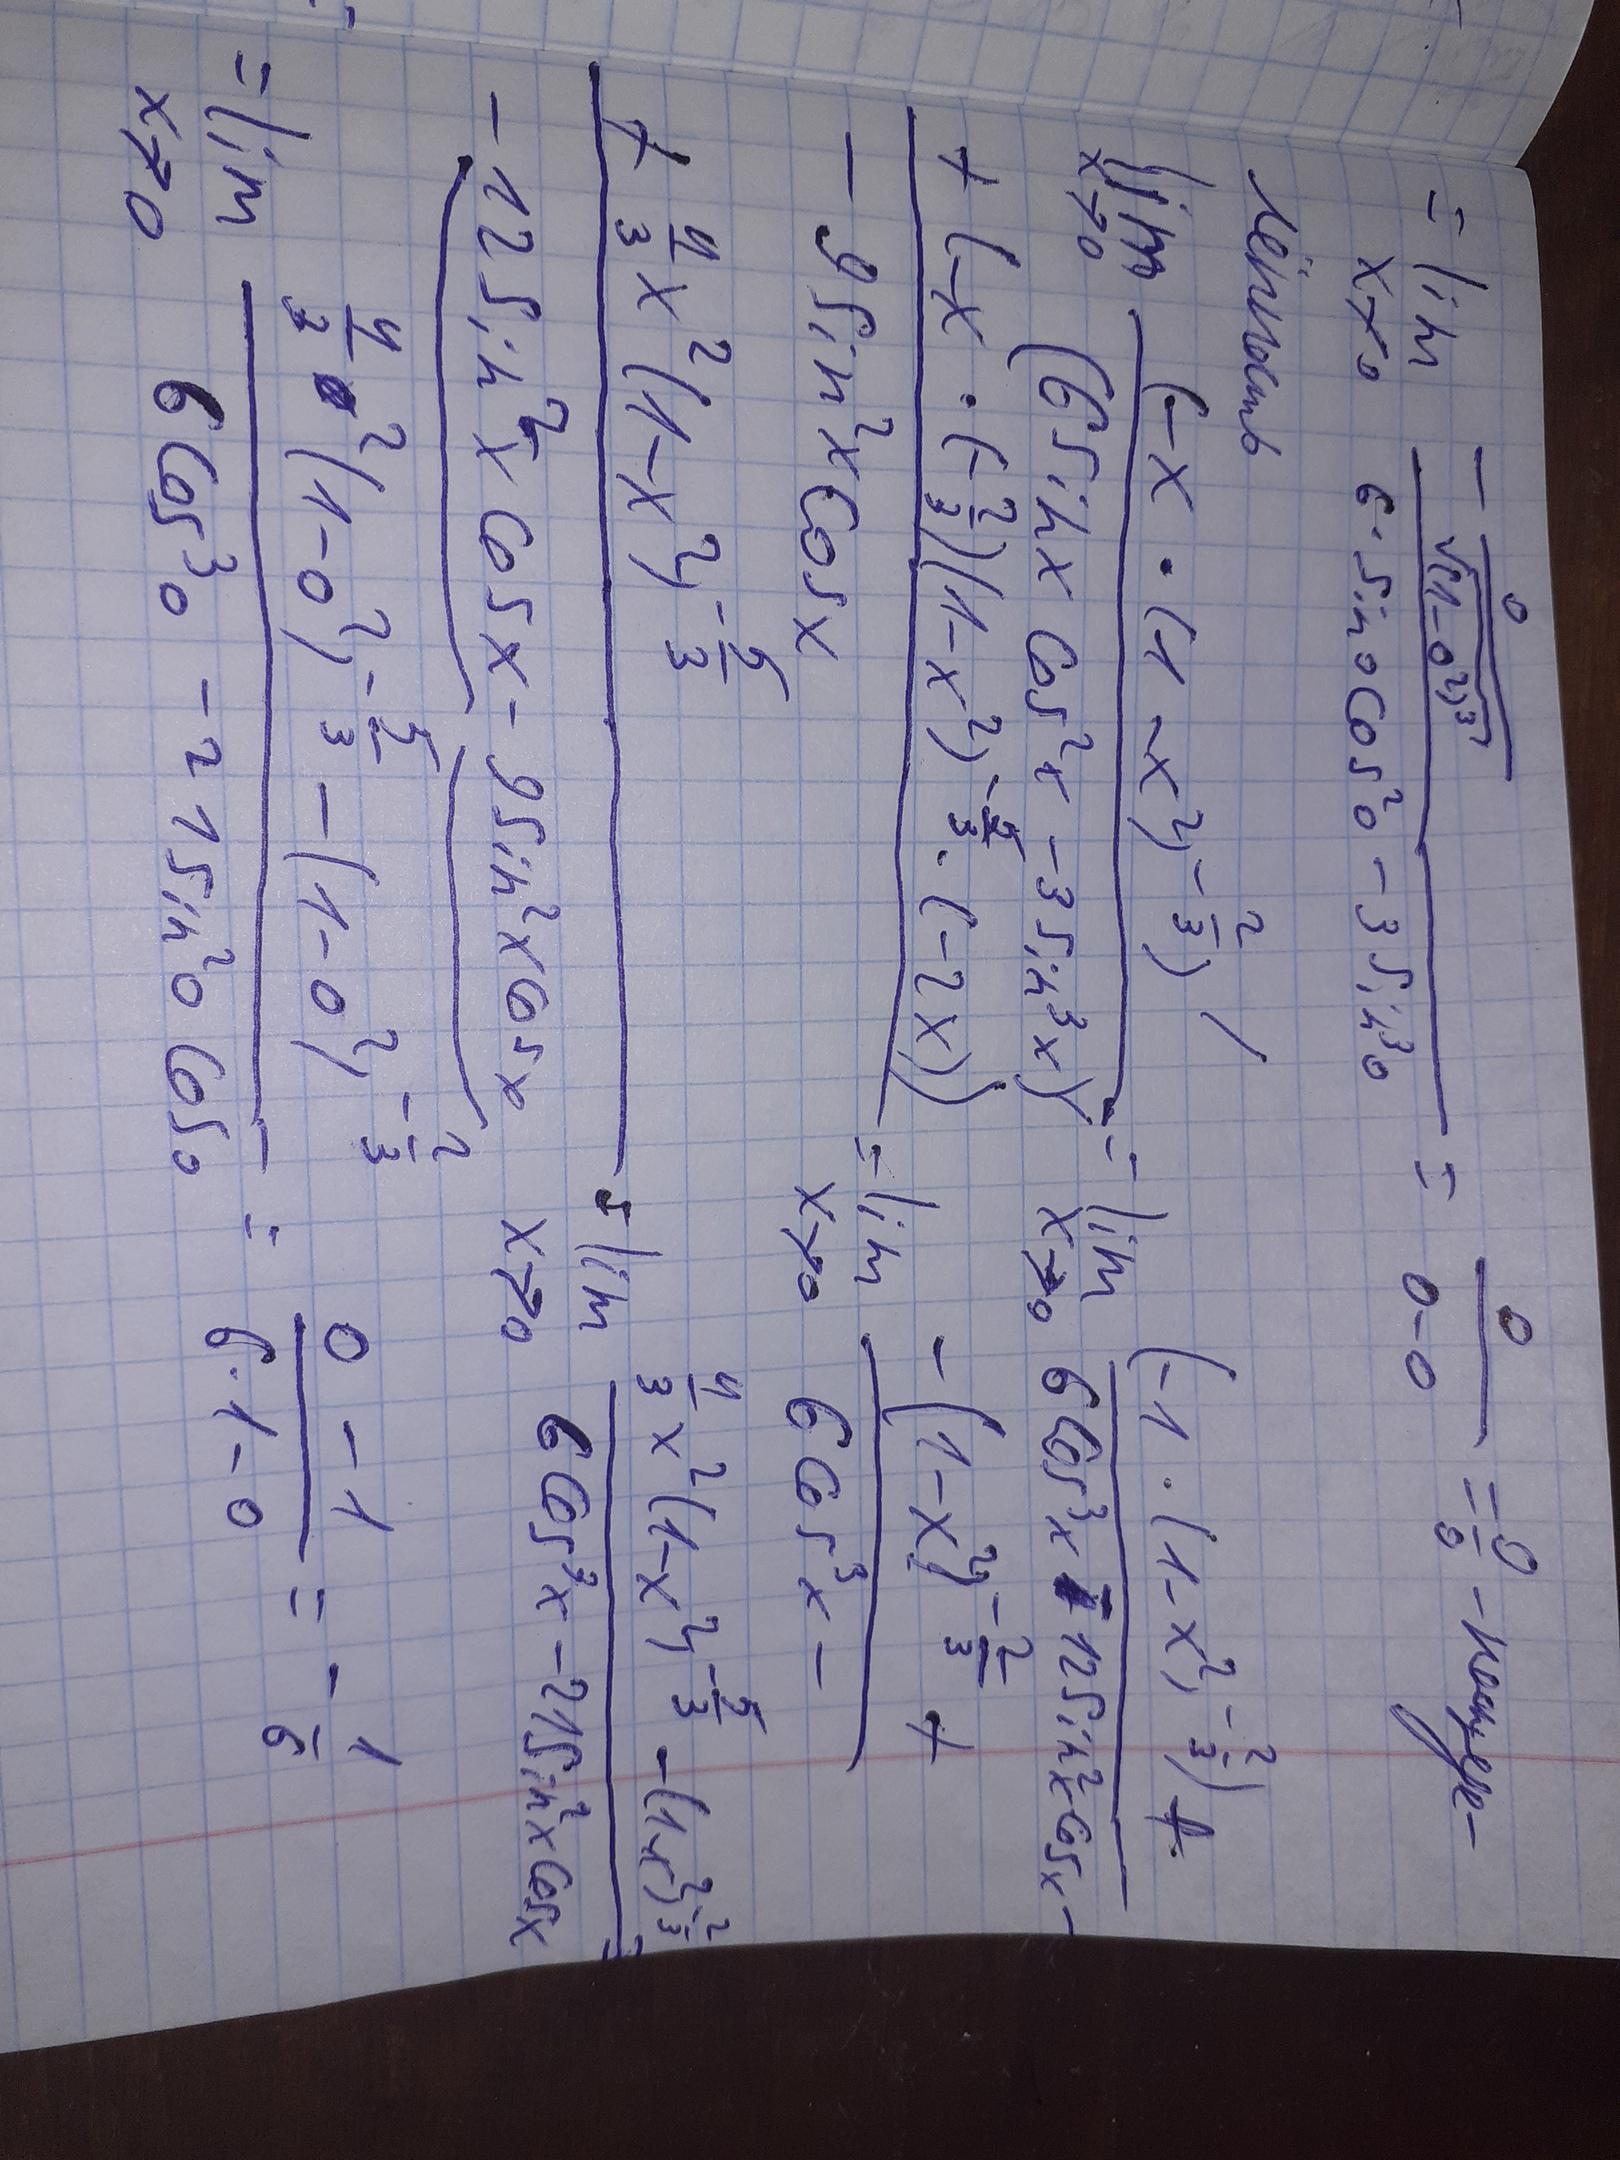 = lim x→0 (- 0/√(1-0²)³) / (6·sin0 cos²0 - 3sin³0) = 0/(0-0) = 0/0 - неопреде-
лённость
lim x→0 (-x·(1-x²)^(-2/3))' / (6sinx cos²x - 3sin³x)' = lim x→0 (-1·(1-x²)^(-2/3)) +
+ (-x·(-2/3)(1-x²)^(-5/3)·(-2x)) / 6cos³x - 12sin²x cosx -
- 9sin²x cosx = lim x→0 -(1-x²)^(-2/3) + / 6cos³x -
+ 4/3 x²(1-x²)^(-5/3) / - 12sin²x cosx - 9sin²x cosx = lim x→0 (4/3 x²(1-x²)^(-5/3) - (1-x²)^(-2/3)) / (6cos³x - 21sin²x cosx) =
= lim x→0 (4/3 0²(1-0²)^(-5/3) - (1-0²)^(-2/3)) / (6cos³0 - 21sin²0 cos0) = (0-1)/(6·1-0) = -1/6